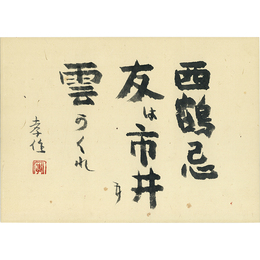 西鶴忌
友は市井に
雲かくれ
孝作